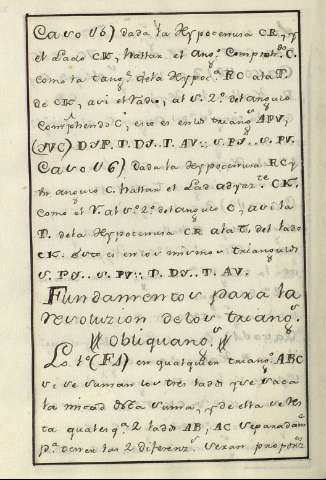 Caso V 6) dada la Hypotenusa CR, y
el Lado CK, hallar el Ang.º Comprehº. C.
como la tang.e de la Hypoc.a RC a la T.
de CK, asi el Radio, al S. 2.º del angulo
Comprehendo C, esto es en los triang.s APV,
(SVC) DSP. T. DS. T. AV :: S. PS.. S. PV.
Caso V 6) dada la Hypotenusa RC y
un angulo C, hallar el Lad adyaz.te CK.
como el R. al S. 2.º del angulo C, asi la
T. de la Hypotenusa CR a la T. del lado
CK. Esto es en los mismos triangulos
S. PS.. S. PV :: T. DS.. T. AV.
Fundamentos para la
revoluzion de los triang.s
// obliquang.s //
Lo 1.º (F1) en qualquier triang.º ABC
si se suman los tres lados y se saca
la mitad de la suma, y de esta se res
ta quales q.e 2 lados AB, AC separadam.te
p.a tener las 2 diferenz.s seran proporz.